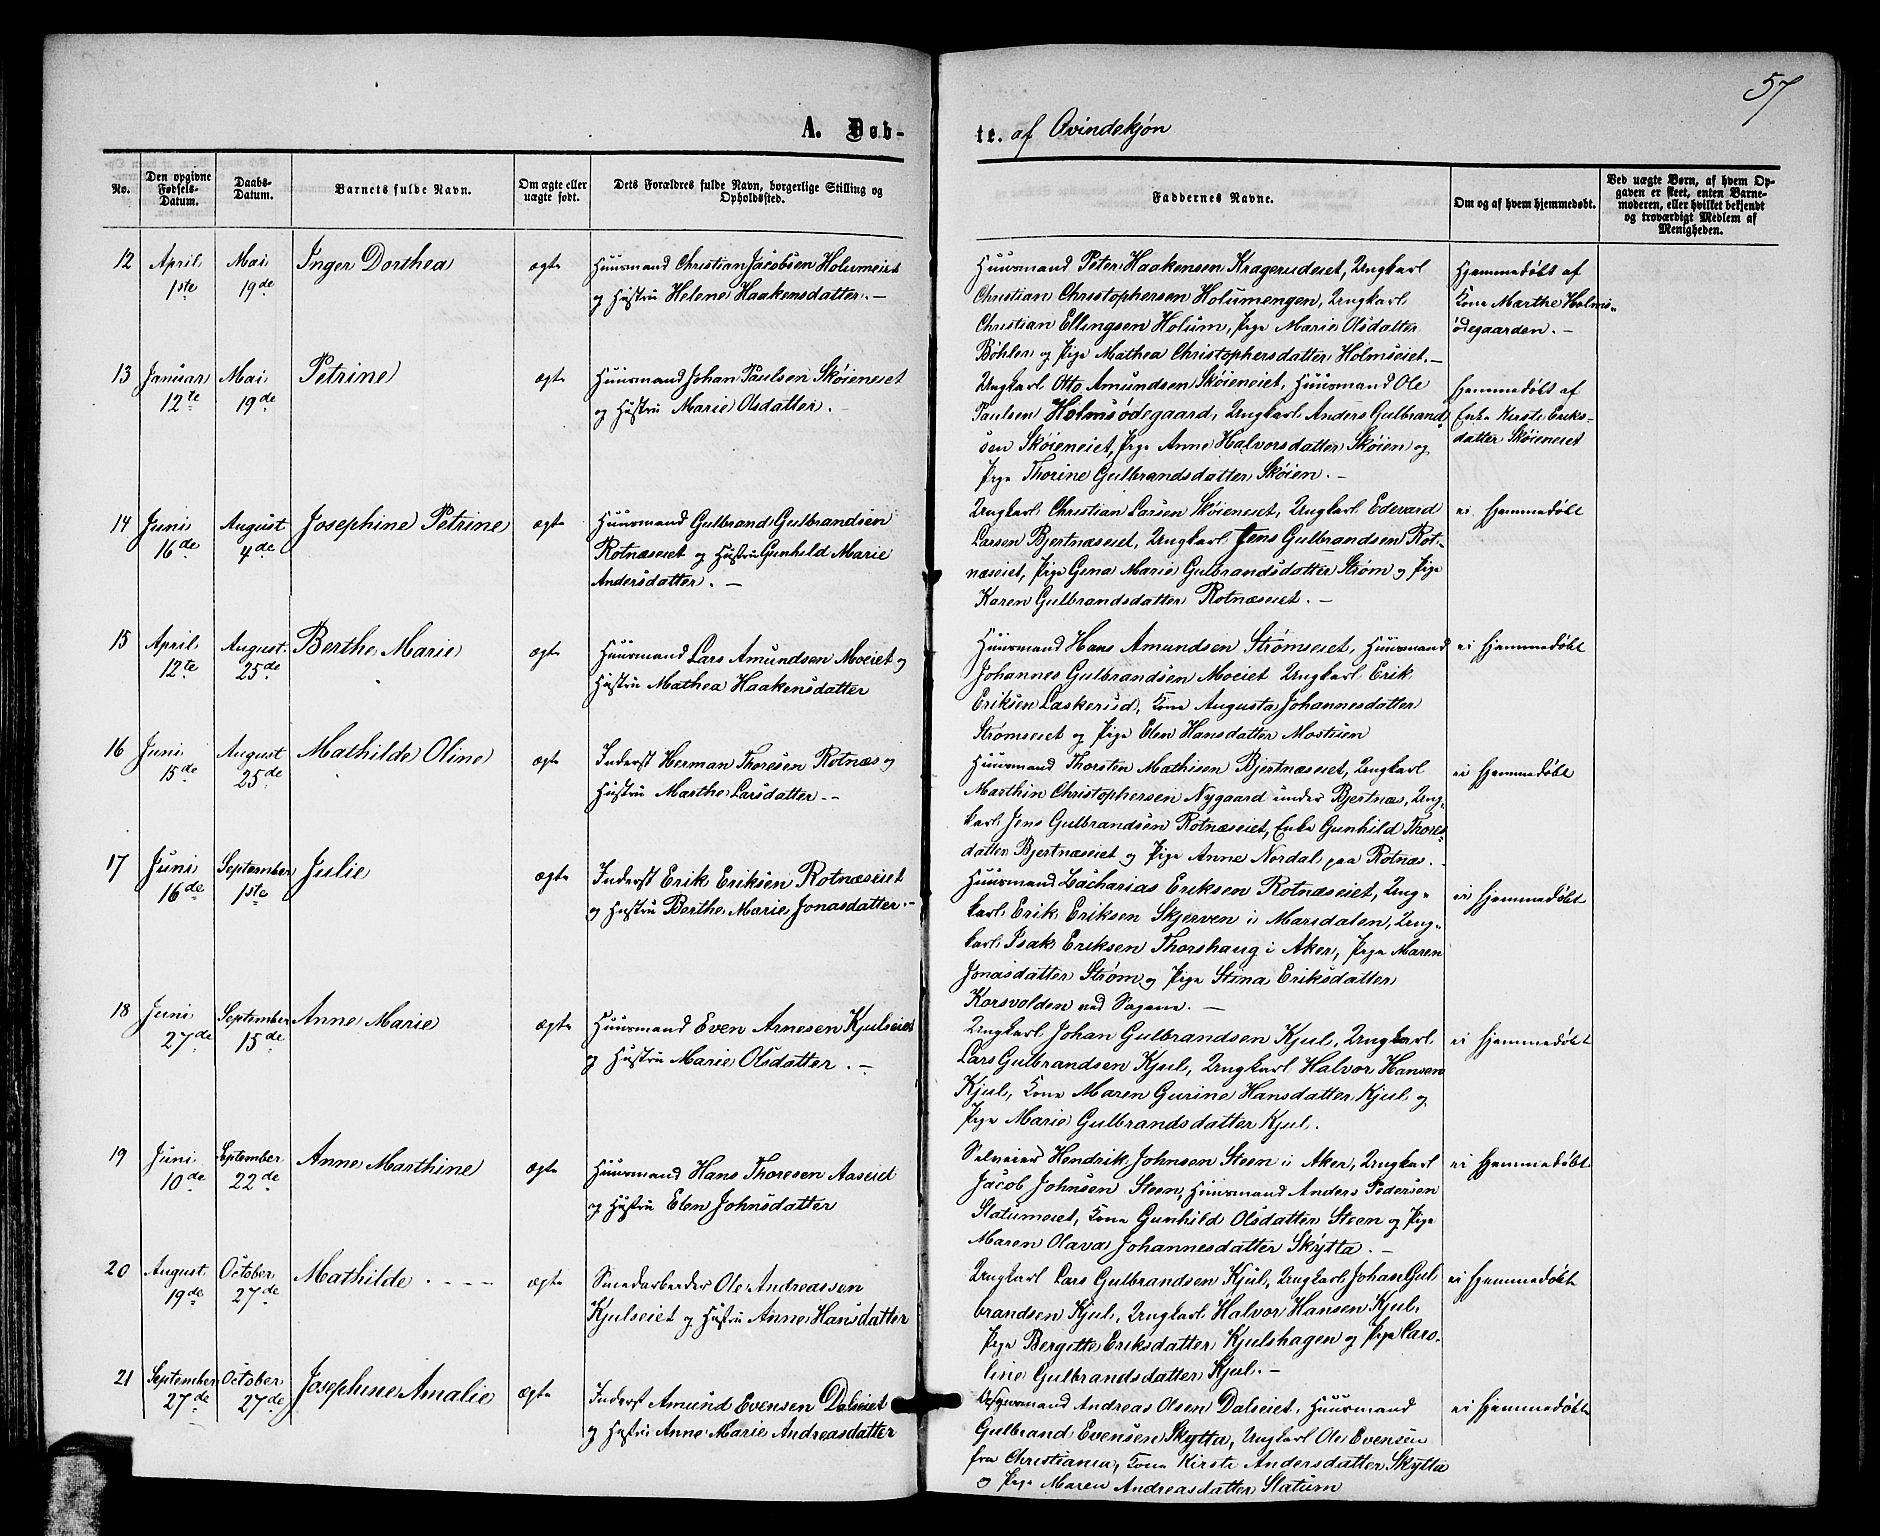 57
A. Døb-
te. af Qvindekjøn
No.
Den opgivne Fødsels-Datum.
Daabs-Datum.
Barnets fulde Navn.
Om ægte eller uægte født.
Dets Forældres fulde Navn, borgerlige Stilling og Opholdssted.
Faddernes Navne.
Om og af hvem hjemmedøbt.
Ved uægte Børn, af hvem Op-
gaven er skeet, enten Barne-
moderen, eller hvilket bekjendt
og troværdigt Medlem af
Menigheden.
12 April 1ste Mai 19de Inger Dorthea ægte
Huusmand Christian Jacobsen Holumeiet
og Hustru Helene Haakensdatter. —
Huusmand Peter Haakensen Kragerudeiet, Ungkarl
Christian Christophersen Holumengen, Ungkarl
Christian Ellingsen Holum, Pige Marie Olsdatter
Bøhler og Pige Mathea Christophersdatter Holmseiet. —
Hjemmedøbt af
Kone Marthe Holms-
ødegaarden. —
13 Januar 12te Mai 19de Petrine ægte
Huusmand Johan Paulsen Skøieneiet
og Hustru Marie Olsdatter. —
Ungkarl Otto Amundsen Skøieneiet, Huusmand Ole
Paulsen Holmsødegaard, Ungkarl Anders Gulbrand-
sen Skøieneiet, Pige Anne Halvorsdatter Skøien og
Pige Thorine Gulbrandsdatter Skøien. —
Hjemmedøbt af
Enke Kirsti Eriks-
datter Skøieneiet
14 Juni 16de August 4de Josephine Petrine ægte
Huusmand Gulbrand Gulbrandsen
Rotnæseiet og Hustru Gunhild Marie
Andersdatter. —
Ungkarl Christian Larsen Skøieneiet, Ungkarl Edevard
Larsen Bjertnæseiet, Ungkarl Jens Gulbrandsen Rot-
næseiet, Pige Gina Marie Gulbrandsdatter Strøm og Pige
Karen Gulbrandsdatter Rotnæseiet. —
ei hjemmedøbt
15 April 12te August 25de Berthe Marie ægte
Huusmand Lars Amundsen Moeiet og
Hustru Mathea Haakensdatter
Huusmand Hans Amundsen Strømseiet, Huusmand
Johannes Gulbrandsen Moeiet Ungkarl Erik
Eriksen Laskerud, Kone Augusta Johannesdatter
Strømseiet og Pige Elen Hansdatter Mostuen
ei hjemmedøbt
16 Juni 15de August 25de Mathilde Oline ægte
Inderst Herman Thoresen Rotnæs og
Hustru Marthe Larsdatter. —
Huusmand Thorsten Mathisen Bjertnæseiet, Ungkarl
Marthin Christophersen Nygaard under Bjertnæs, Ung-
karl Jens Gulbrandsen Rotnæseiet, Enke Gunhild Thores-
datter Bjertnæseiet og Pige Anne Nordal paa Rotnæs. —
ei hjemmedøbt
17 Juni 16de September 1ste Julie ægte
Inderst Erik Eriksen Rotnæseiet
og Hustru Berthe Marie Jonasdatter. —
Huusmand Zacharias Eriksen Rotnæseiet, Ung-
karl Erik Eriksen Skjerven i Marsdalen, Ung-
karl Isak Eriksen Thorshaug i Aker, Pige Maren
Jonasdatter Strøm og Pige Stina Eriksdatter
Korsvolden ved Sagene. —
ei hjemmedøbt
18 Juni 27de September 15de Anne Marie ægte
Huusmand Even Arnesen Kjulseiet
og Hustru Marie Olsdatter. —
Ungkarl Johan Gulbrandsen Kjul, Ungkarl
Lars Gulbrandsen Kjul, Ungkarl Halvor Hansen
Kjul, Kone Maren Gurine Hansdatter Kjul og
Pige Marie Gulbrandsdatter Kjul.
ei hjemmedøbt
19 Juni 10de September 22de Anne Marthine ægte
Huusmand Hans Thoresen Aaseiet
og Hustru Elen Johnsdatter
Selveier Hendrik Johnsen Steen i Aker, Ungkarl
Jacob Johnsen Steen, Huusmand Anders Pedersen
Slatumeiet, Kone Gunhild Olsdatter Steen og Pige
Maren Olava Johannesdatter Skytta. —
ei hjemmedøbt
20 August 19de October 27de Mathilde ---- ægte
Smedarbeider Ole Andreassen
Kjulseiet og Hustru Anne Hansdatter
Ungkarl Lars Gulbrandsen Kjul, Ungkarl Johan Gul
brandsen Kjul, Ungkarl Halvor Hansen Kjul,
Pige Bergitte Eriksdatter Kjulshagen og Pige Caro-
line Gulbrandsdatter Kjul. —
ei hjemmedøbt
21 September 27de October 27de Josephine Amalie ægte
Inderst Amund Evensen Dalseiet
og Hustru Anne Marie Andreasdatter
Huusmand Andreas Olsen Dalseiet, Huusmand
Gulbrand Evensen Skytta, Ungkarl Ole Evensen
fra Christiania, Kone Kirsti Andersdatter Skytta
og Pige Maren Andreasdatter Slatum
ei hjemmedøbt